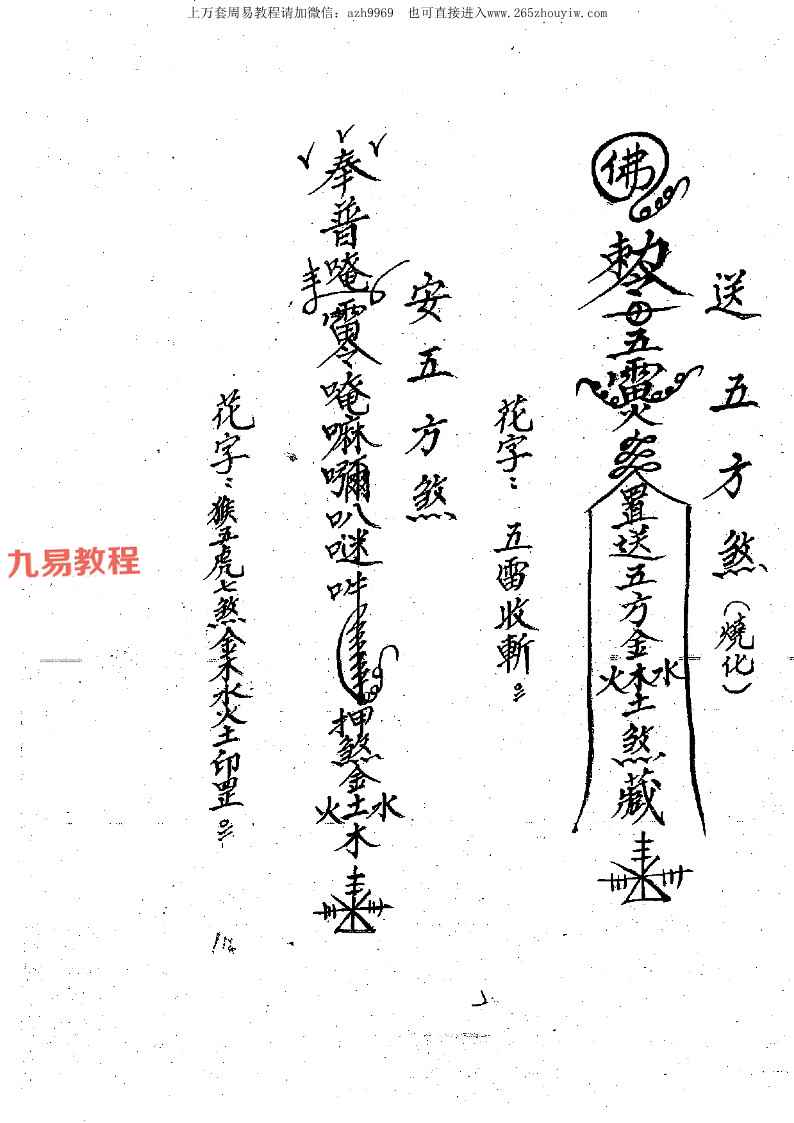 上万套周易教程请加微信：azh9969　也可直接进入www.265zhouyiw.com
送五方煞（燒化）
佛
敕令
五雷火
置送五方金
火木水
土煞藏
花字：五雷收斬
安五方煞
奉普唵
雷令唵嘛嚩叭㗭吽
押煞金
火土水
木
花字：猴五虎七煞金木水火土印罡
九易教程